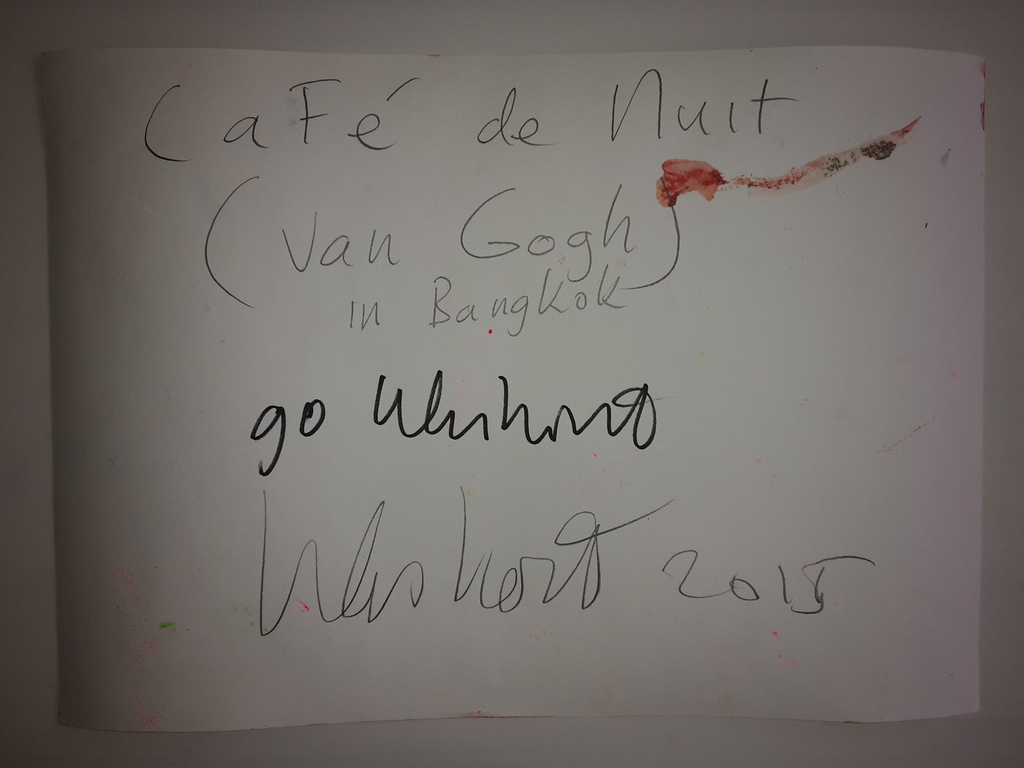 CaFé de Nuit
(Van Gogh)
in Bangkok
go
2015